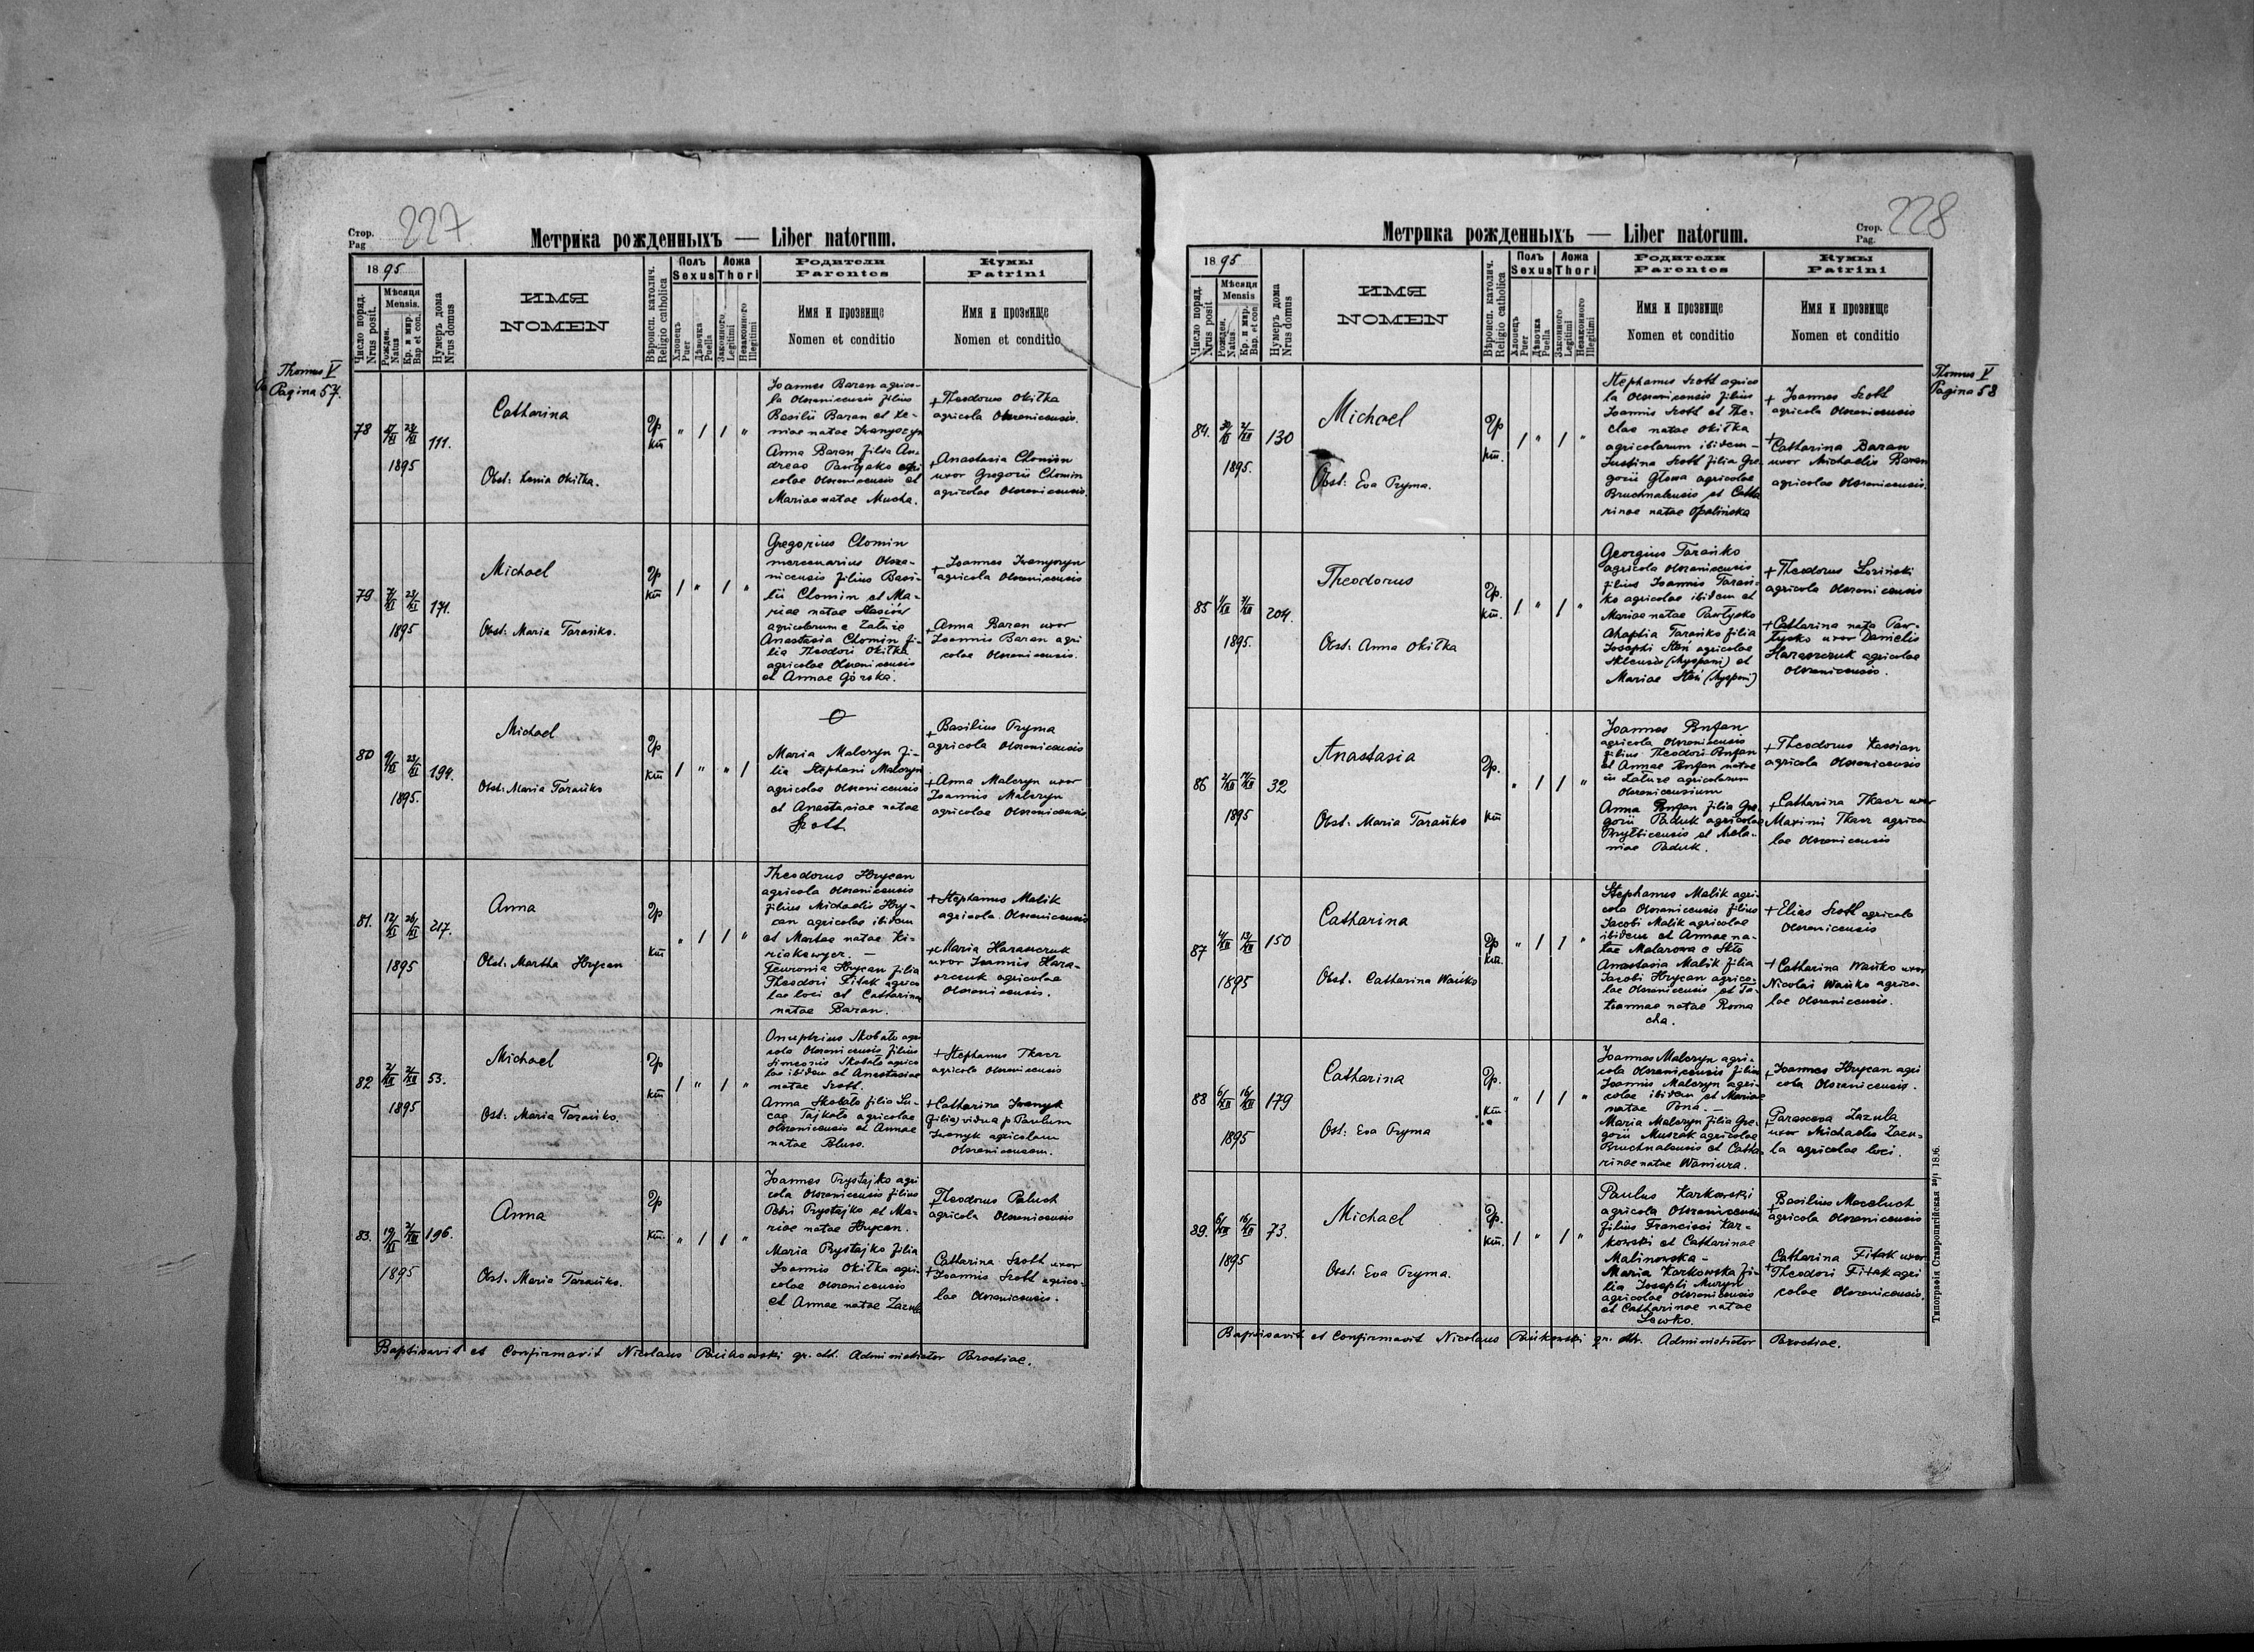 Стор.
Pag
227
Метрика рожденныхъ — Liber natorum.
1895
Число поряд.
Nrus posit.
Мѣсяця
Mensis.
Рожден.
Natus
Кр. и мир.
Bap et con.
Нумеръ дома
Nrus domus
ИМЯ
NOMEN
Вѣроисп. католич.
Religio catholica
Полъ
Sexus
Хлопецъ
Puer
Дѣвочка
Puella
Ложа
Thori
Законного
Legitimi
Незаконного
Illegitimi
Родители
Parentes
Имя и прозвище
Nomen et conditio
Кумы
Patrini
Имя и прозвище
Nomen et conditio
Thomus V
Pagina 57.
78
23/XI
1895
111.
Catharina
Obst: Xenia Okiłka.
Гр
кт
" / / "
Joannes Baran agrico-
la Olszanicensis filius
Basilii Baran et Xe-
niae natae Iwanyszyn
Anna Baran filia An-
dreae Pawłysko agri
colae Olszanicensis et
Mariae natae Mucha.
+ Theodorus Okiłka
agricola Olszanicensis.
+ Anastasia Chomin
uxor Gregorii Chomin
agricolae Olszanicensis.
79
7/XI
23/XI
1895
171.
Michael
Obst: Maria Tarańko.
Гр
кт
/ " / "
Gregorius Chomin
mercenarius Olsza-
nicensis filius Basi-
lii Chomin et Ma-
riae natae Stasiów
agricolarum e Załuże
Anastasia Chomin fi-
lia Theodori Okiłka
agricolae Olszanicensis
et Annae Górska.
+ Joannes Iwanyszyn
agricola Olszanicensis
+ Anna Baran uxor
Joannis Baran agri
colae Olszanicensis.
80
9/XI
23/XI
1895.
194.
Michael
Obst: Maria Tarańko
Гр
кт
/ " " /
Maria Malczyn fi-
lia Stephani Malczyn
agricolae Olszanicensis
et Anastasiae natae
Szott
+ Basilius Pryma
agricola Olszanicensis
+ Anna Malczyn uxor
Joannis Malczyn
agricolae Olszanicensis.
81.
12/XI
26/XI
1895
217.
Anna
Obst: Martha Hrycan
Гр
кт
" / / "
Theodorus Hrycan
agricola Olszanicensis
filius Michaelis Hry-
can agricolae ibidem
et Marthae natae Ki-
riakewycz. —
Fewronia Hrycan filia
Theodori Fitak agrico
lae loci et Catharinae
natae Baran.
+ Stephanus Malik
agricola Olszanicensis
+ Maria Haraszczuk
uxor Joannis Hara-
szczuk agricolae
Olszanicensis.
82
2/XII
2/XII
1895
53.
Michael
Ost: Maria Tarańko.
Гр
кт
/ " / "
Onuphrius Skobało agri
cola Olszanicensis filius
Simeonis Skobało agrico
lae ibidem et Anastasiae
natae Szott.
Anna Skobało filia Lu-
cae Tajkało agricolae
Olszanicensis et Annae
natae Blus.
+ Stephanus Tkacz
agricola Olszanicensis
+ Catharina Iwanyk
(filia) vidua p Paulum
Iwanyk agricolam
Olszanicensem.
83.
19/XI
2/XII
1895
196.
Anna
Obst: Maria Tarańko.
Гр
кт.
" / / "
Joannes Prystajko agri
cola Olszanicensis filius
Petri Prystajko et Ma-
riae natae Hrycan.
Maria Prystajko filia
Joannis Okiłka agri-
colae Olszanicensis
et Annae natae Zazula
+ Theodorus Paluch
agricola Olszanicensis
+ Catharina Szott uxor
Joannis Szott agrico-
lae Olszanicensis.
Baptisavit et Confirmavit Nicolaus Bańkowski gr. cth. Administrator Parochiae.
Стор.
Pag.
228
Метрика рожденныхъ — Liber natorum.
1895
Число поряд.
Nrus posit
Мѣсяця
Mensis
Рожден.
Natus
Кр. и мир.
Bap. et con
Нумеръ дома
Nrus domus
ИМЯ
NOMEN
Вѣроисп. католич.
Religio catholica
Полъ
Sexus
Хлопецъ
Puer
Дѣвочка
Puella
Ложа
Thori
Законного
Legitimi
Незаконного
Illegitimi
Родители
Parentes
Имя и прозвище
Nomen et conditio
Кумы
Patrini
Имя и прозвище
Nomen et conditio
Thomus V
Pagina 58
84.
2/XII
1895.
130
Michael
Obst: Eva Pryma.
Гр
кт.
/ " / "
Stephanus Szott agrico
la Olszanicensis filius
Joannis Szott et The-
clae natae Okiłka
agricolarum ibidem —
Justina Szott filia Gre-
gorii Głowa agricolae
Bruchnalensis et Catha
rinae natae Opalińska
+ Joannes Szott
agricola Olszanicensis
+ Catharina Baran
uxor Michaelis Baran
agricolae Olszanicensis.
85
1/XII
1895.
204.
Theodorus
Obst: Anna Okiłka
Гр.
кт.
/ " / "
Georgius Tarańko
agricola Olszanicensis
filius Joannis Tarań-
ko agricolae ibidem et
Mariae natae Pawłysko
Ahaphia Tarańko filia
Josephi Steń agricolae
Mariae Steń
+ Theodorus Łoziński
agricola Olszanicensis
+ Catharina nata Paw-
łysko uxor Danielis
Haraszczuk agricolae
Olszanicensis.
86
2/XII
1895
32
Anastasia
Obst: Maria Tarańko
Гр.
кт
" / / "
Joannes Bnżan
agricola Olszanicensis
filius Theodori Bnżan
et Annae Bnżan natae
in Załuże agricolarum
Olszanicensium
Anna Bnżan filia Gre-
gorii Paduk agricolae
Przyłbicensis et Mela-
niae Paduk.
+ Theodorus Kassian
agricola Olszanicensis
+ Catharina Tkacz uxor
Maximi Tkacz agrico
lae Olszanicensis
87
13/XII
1895
150
Catharina
Obst. Catharina Wańko
Гр
кт.
" / / "
Stephanus Malik agri-
cola Olszanicensis filius
Jacobi Malik agricolae
ibidem et Annae na-
tae Malarowa e Skło
Anastasia Malik filia
Jacobi Hrycan agrico-
lae Olszanicensis et Ta-
tiannae natae Roma
cha.
+ Elias Szott agricola
Olszanicensis
+ Catharina Wańko uxor
Nicolai Wańko agrico-
lae Olszanicensis.
88
6/XII
16/XII
1895
179
Catharina
Ost: Eva Pryma
Гр.
кт.
" / / "
Joannes Malczyn agri-
cola Olszanicensis filius
Joannis Malczyn agri-
colae ibidem et Mariae
natae Pona. —
Maria Malczyn filia Gre-
gorii Muszak agricolae
Bruchnalensis et Catha-
rinae natae Waniura.
+ Joannes Hrycan agri
cola Olszanicensis.
+ Parasceva Zazula
uxor Michaelis Zazu-
la agricolae loci.
89.
6/XII
16/XII
1895
73.
Michael
Obst: Eva Pryma.
Гр.
кт.
/ " / "
Paulus Karkowski
agricola Olszanicensis
filius Francisci Kar-
kowski et Catharinae
Malinowska —
Maria Karkowska fi-
lia Josephi Muryn
agricolae Olszanicensis
et Catharinae natae
Sawko.
+ Basilius Maceluch
agricola Olszanicensis
+ Catharina Fitak uxor
Theodori Fitak agri
colae Olszanicensis.
Baptisavit et Confirmavit Nicolaus Bańkowski gr. cth. Administrator Parochiae.
Типографія Ставропигійская